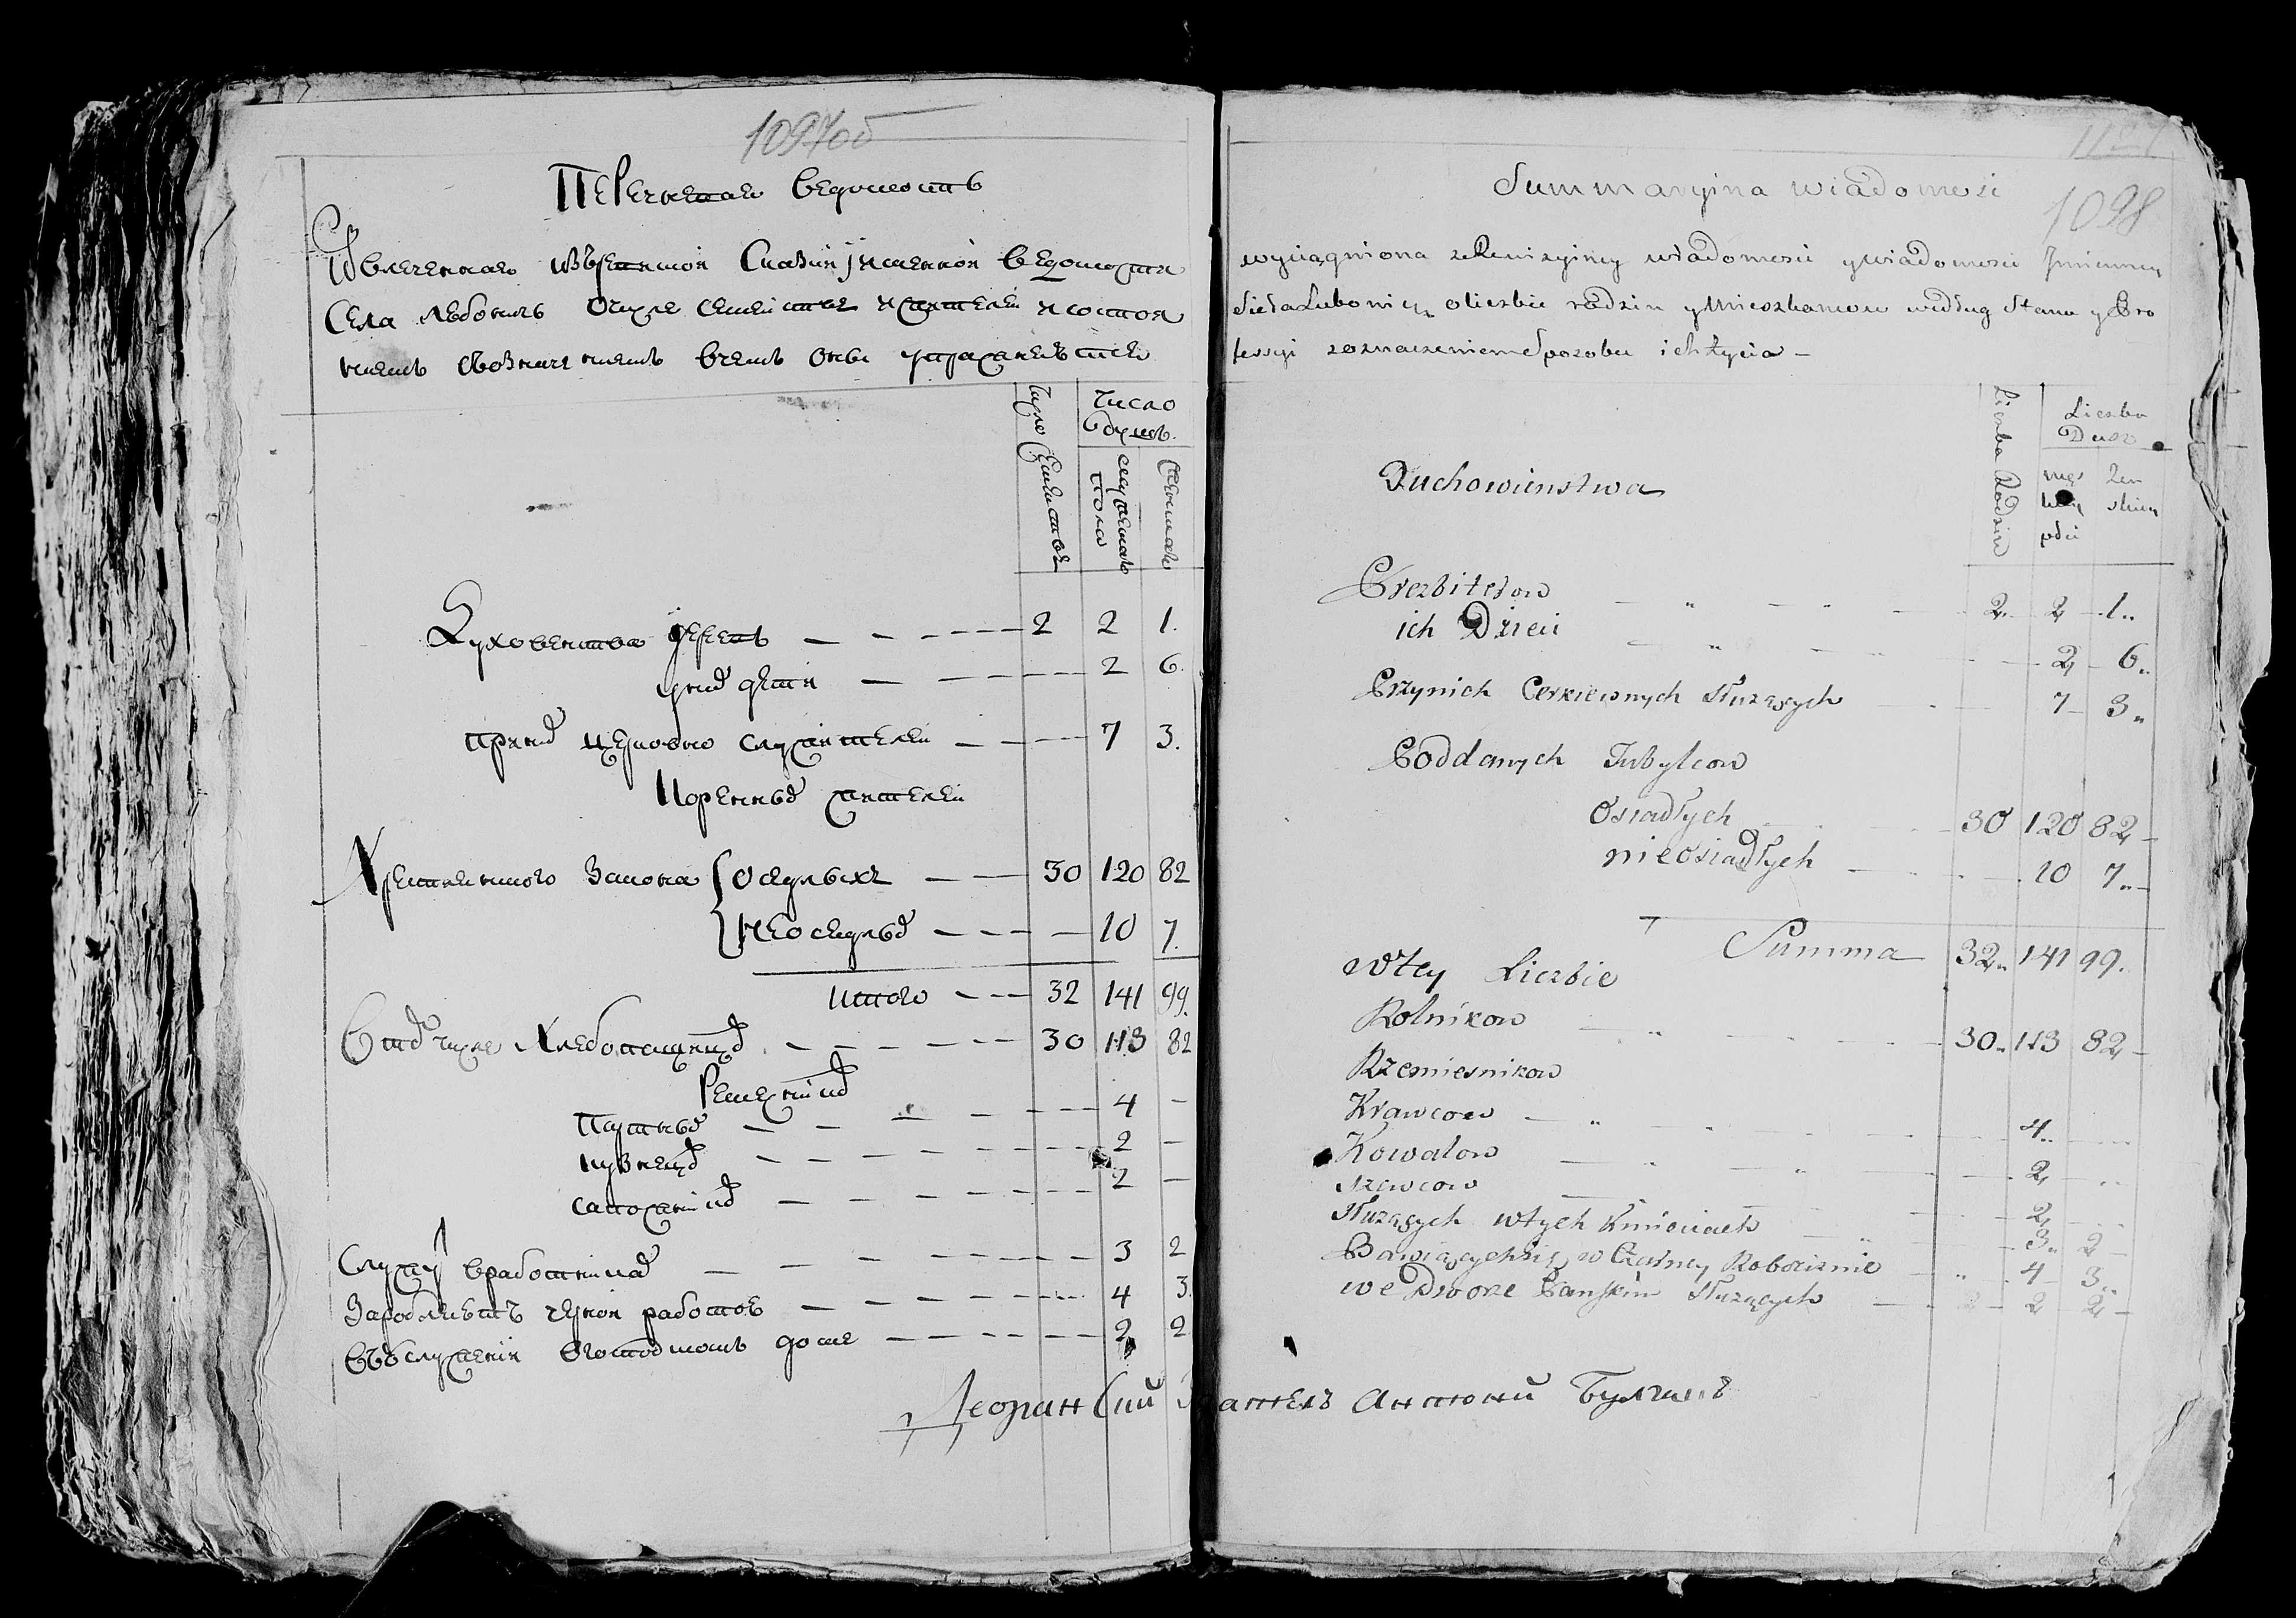 1097об
Перечнетая ведомость
Извлеченная изъ ревизкой Сказки и именной ведомости
Села Лебонич О числе семействъ и жителей и состоя
нiемъ Обозначенiемъ вчемъ Они упражняются
Число семействъ
Число
Душъ.
мужеска
пола
женска
Духовенства Iереевъ — — — 2 2 1.
у них дети — — — 2 6.
при них церковно служителей — — — 7 3.
Коренных жителей
Хрестиянского Закона { Оседлыхъ — — 30 120 82
{ неоседлых — — — 10 7.
Итого — — 32 141 99.
В том числе Хлебопашцов — — — 30 113 82
Ремесников
Портных — — — 4 —
кузнецов — — — 2 —
сапожников — — — 2 —
Служащ в работниках — — — 3 2
Заробляютъ черной работой — — — 4 3.
Въ служенiи в господском доме — — — 2 2
Антоний
1127
1098
Summaryina wiadomosć
wyciągniona z Rewizyiney wiadomosci y wiadomosci Imienney
Sieła Lubonicz o liczbie rodzin y Mieszkancow według Stanu y Pro
fessyi z oznaczeniem Sposobu ich Życia —
Liczba Rodzin
Liczba
Dusz
męz
kiey
płci
Żen
skiey
Duchowienstwa
Prezbiterow 2 2 1
ich Dzieci 2 6
Przy nich Cerkiewnych Służących 7 3
Poddanych Tubylcow
Osiadłych 30 120 82
nieosiadłych 10 7
Summa 32 141 99.
w tey Liczbie
Rolnikow 30 113 82
Rzemiesnikow
Krawcow 4
Kowalow 2
Szewcow 2
Służących w tych Kmieciach 3 2
Bawiących się w Czarney Robociznie 4 3
we Dworze Panskim Służących 2 2